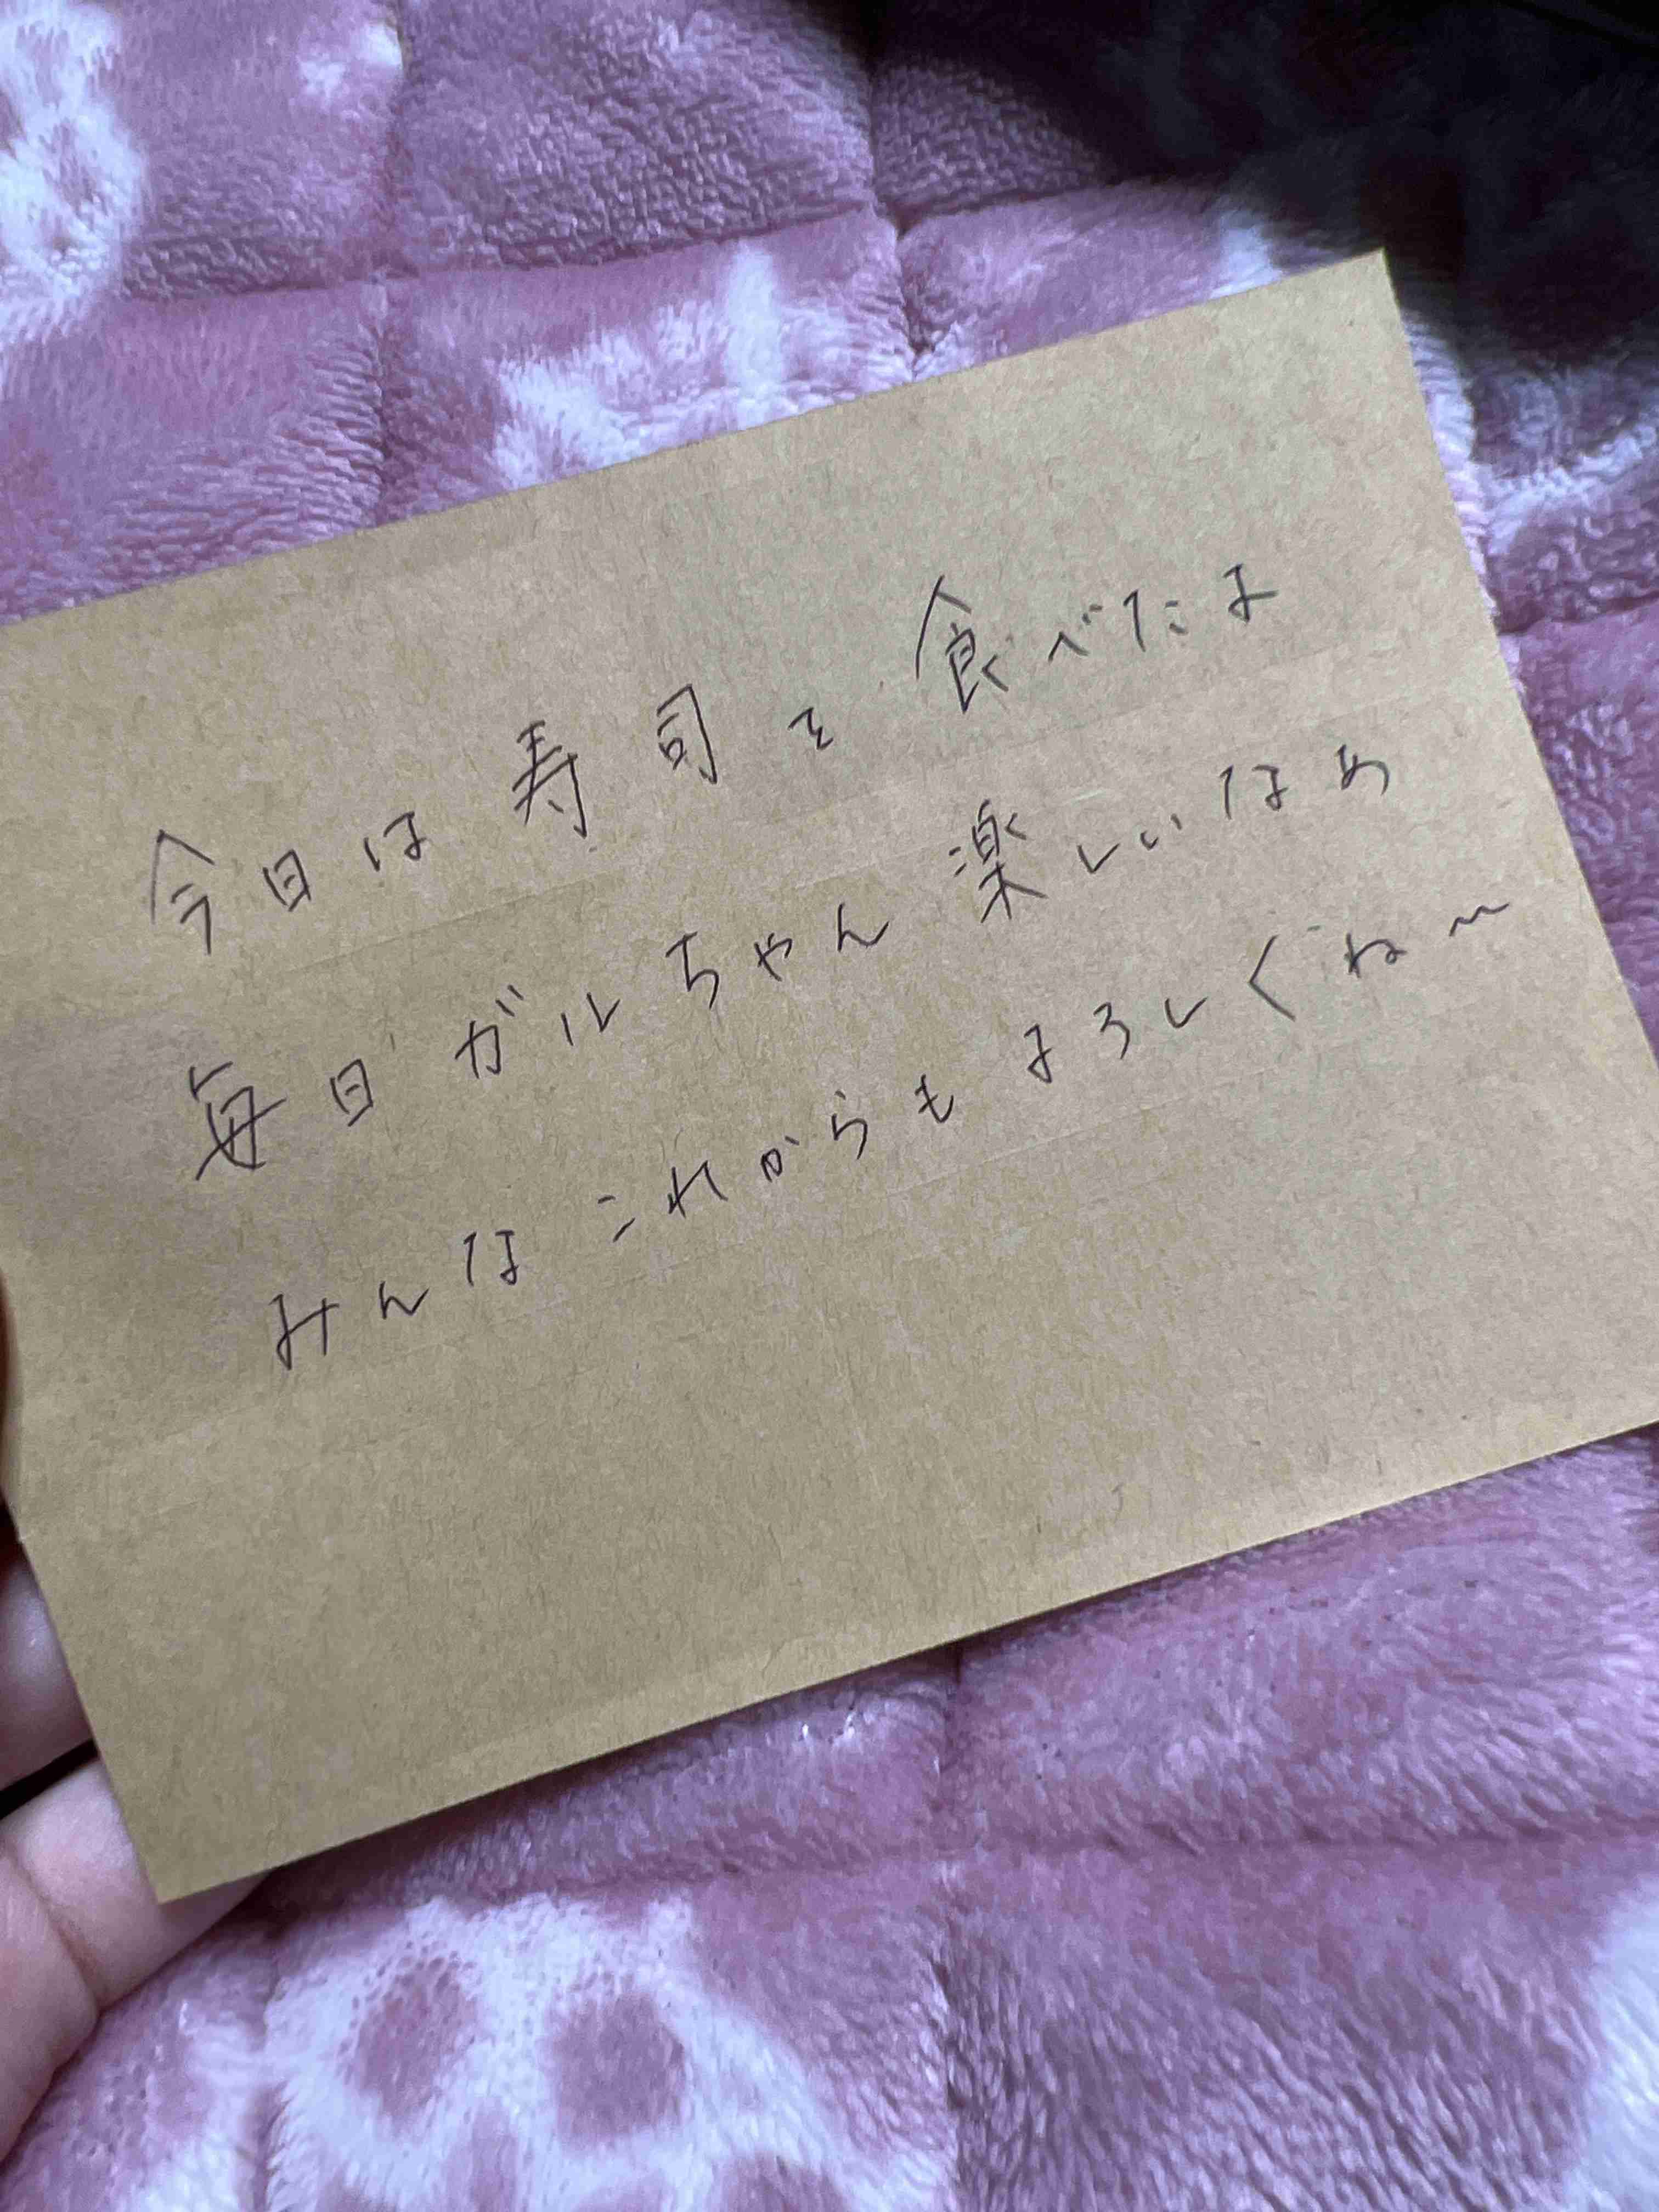 今日は寿司を食べたよ
毎日ガルちゃん楽しいなぁ
みんなこれからもよろしくね〜